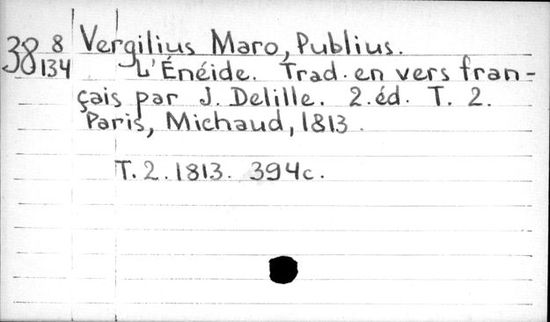 38 8/134 Vergilius Maro, Publius.
L'Énéide. Trad. en vers fran-
çais par J. Delille. 2.éd. T. 2.
Paris, Michaud, 1813.
T. 2. 1813. 394c.